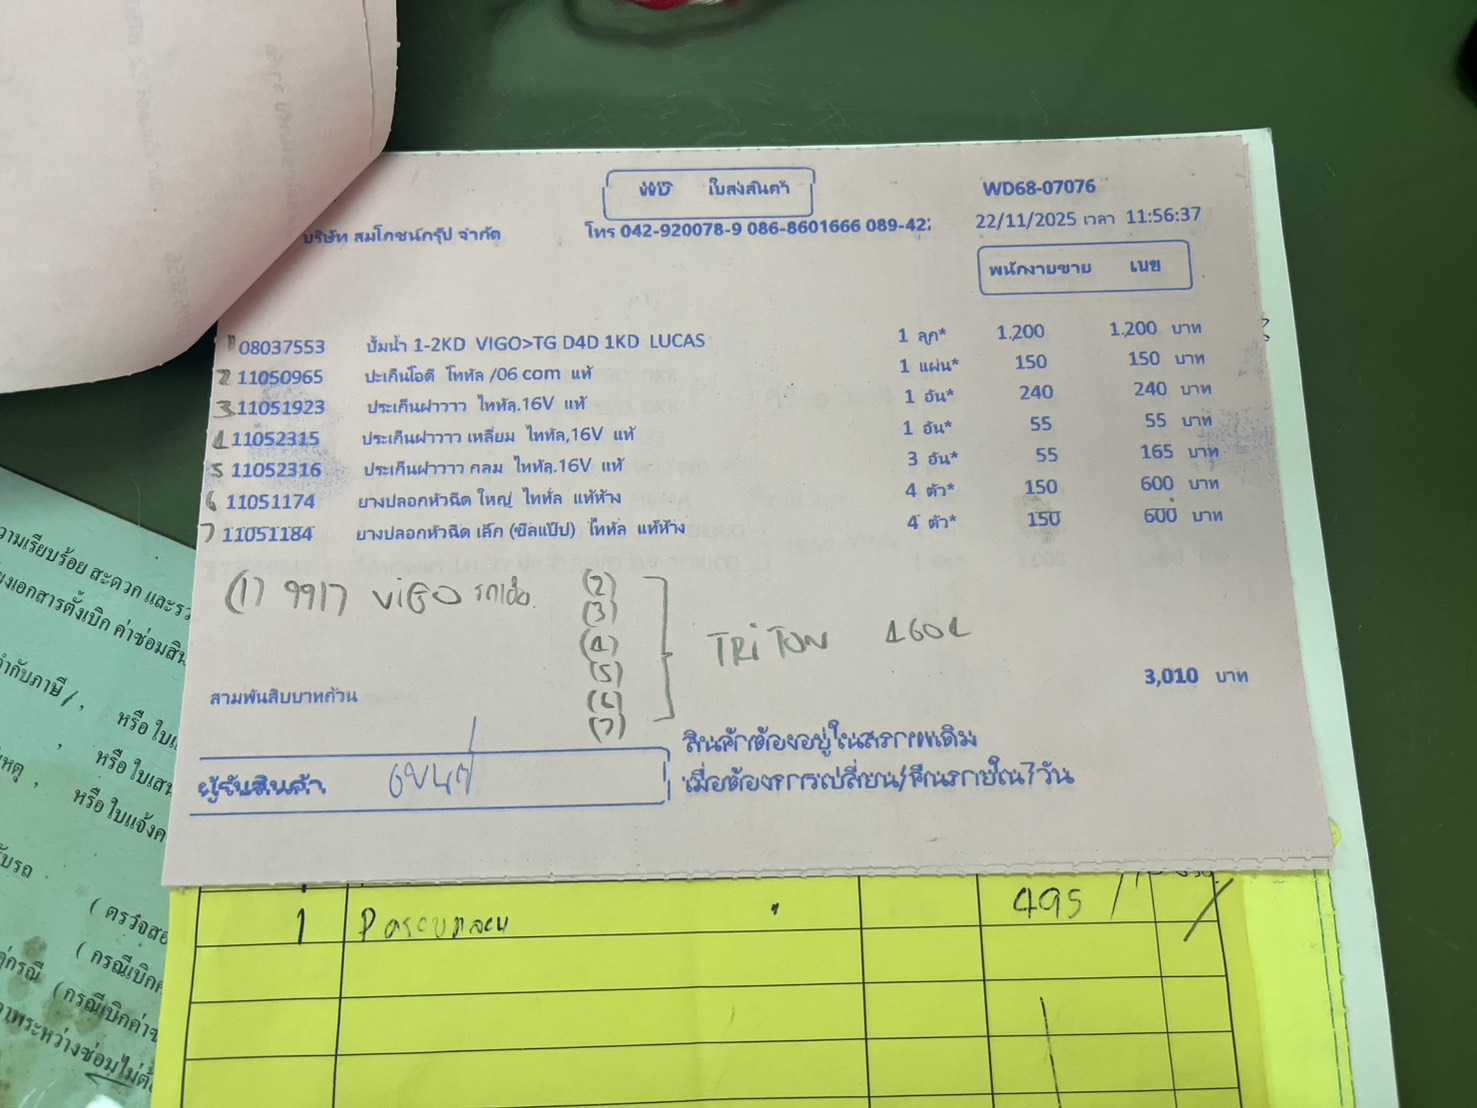 WD ใบส่งสินค้า
WD68-07076
บริษัท สมโภชน์กรุ๊ป จำกัด
โทร 042-920078-9 086-8601666 089-422
22/11/2025 เวลา 11:56:37
พนักงานขาย เนย
1 08037553 ปั้มน้ำ 1-2KD VIGO>TG D4D 1KD LUCAS 1 ลูก* 1,200 1,200 บาท
2 11050965 ปะเก็นโอดี โททัล /06 com แท้ 1 แผ่น* 150 150 บาท
3 11051923 ประเก็นฝาวาว ไททัล.16V แท้ 1 อัน* 240 240 บาท
4 11052315 ประเก็นฝาวาว เหลี่ยม ไททัล,16V แท้ 1 อัน* 55 55 บาท
5 11052316 ประเก็นฝาวาว กลม ไททัล.16V แท้ 3 อัน* 55 165 บาท
6 11051174 ยางปลอกหัวฉีด ใหญ่ ไททั่ล แท้ห้าง 4 ตัว* 150 600 บาท
7 11051184 ยางปลอกหัวฉีด เล็ก (ซีลแป๊ป) ไททัล แท้ห้าง 4 ตัว* 150 600 บาท
(1) 9917 ViGO
(2)
(3)
(4)
(5)
(6)
(7)
TRiTON 4604
สามพันสิบบาทถ้วน
3,010 บาท
สินค้าต้องอยู่ในสภาพเดิม
เมื่อต้องการเปลี่ยน/คืนภายใน 7 วัน
ผู้รับสินค้า
1 495
ความเรียบร้อย สะดวก และรว
งเอกสารตั้งเบิก ค่าซ่อมสิน
กำกับภาษี / , หรือ ใบ
, หรือ ใบเสน
หตุ , หรือ ใบแจ้งค
ับรถ
( ตรวจสอ
( กรณีเบิกค
คู่กรณี (กรณีเบิกค่าซ
าพระหว่างซ่อมไม่ต้